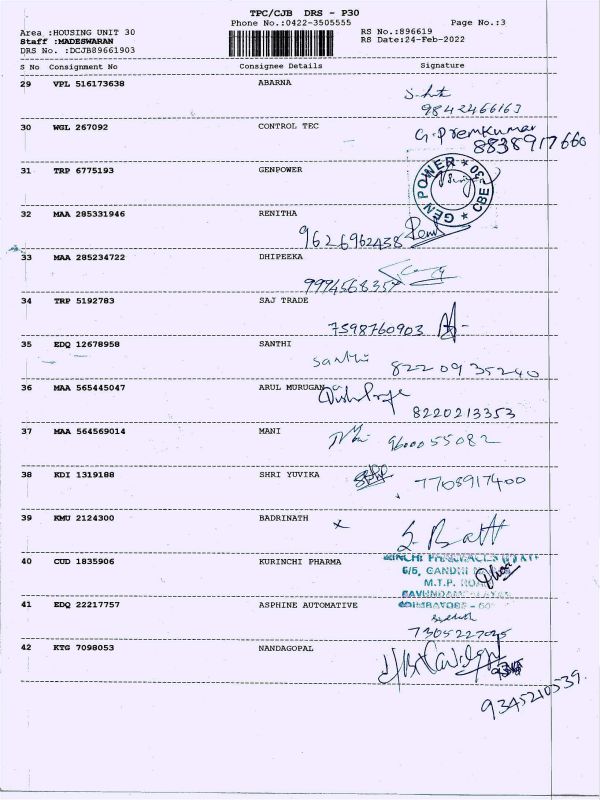 TPC/CJB DRS - P30
Phone No.:0422-3505555
Page No.:3
Area :HOUSING UNIT 30
Staff :MADESWARAN
DRS No. :DCJB89661903
RS No.:896619
RS Date:24-Feb-2022
S No Consignment No Consignee Details Signature
29 VPL 516173638 ABARNA
9842466163
30 WGL 267092 CONTROL TEC G.Premkumar
8838917660
31 TRP 6775193 GENPOWER
GEN POWER * CBE - 30 *
32 MAA 285331946 RENITHA
9626962438
33 MAA 285234722 DHIPEEKA
34 TRP 5192783 SAJ TRADE
7598760903
35 EDQ 12678958 SANTHI
Santhi 8220935240
36 MAA 565445047 ARUL MURUGAN
8220213353
37 MAA 564569014 MANI
9600055082
38 KDI 1319188 SHRI YUVIKA
7705917400
39 KMU 2124300 BADRINATH x
40 CUD 1835906 KURINCHI PHARMA
5/5, GANDHI
M.T.P. ROAD
41 EDQ 22217757 ASPHINE AUTOMATIVE COIMBATORE - 
42 KTG 7098053 NANDAGOPAL
9345210539.